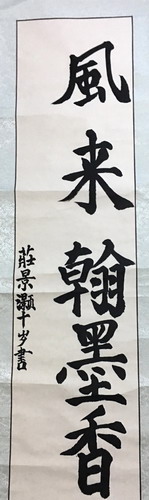 風来翰墨香
莊景灝十岁書